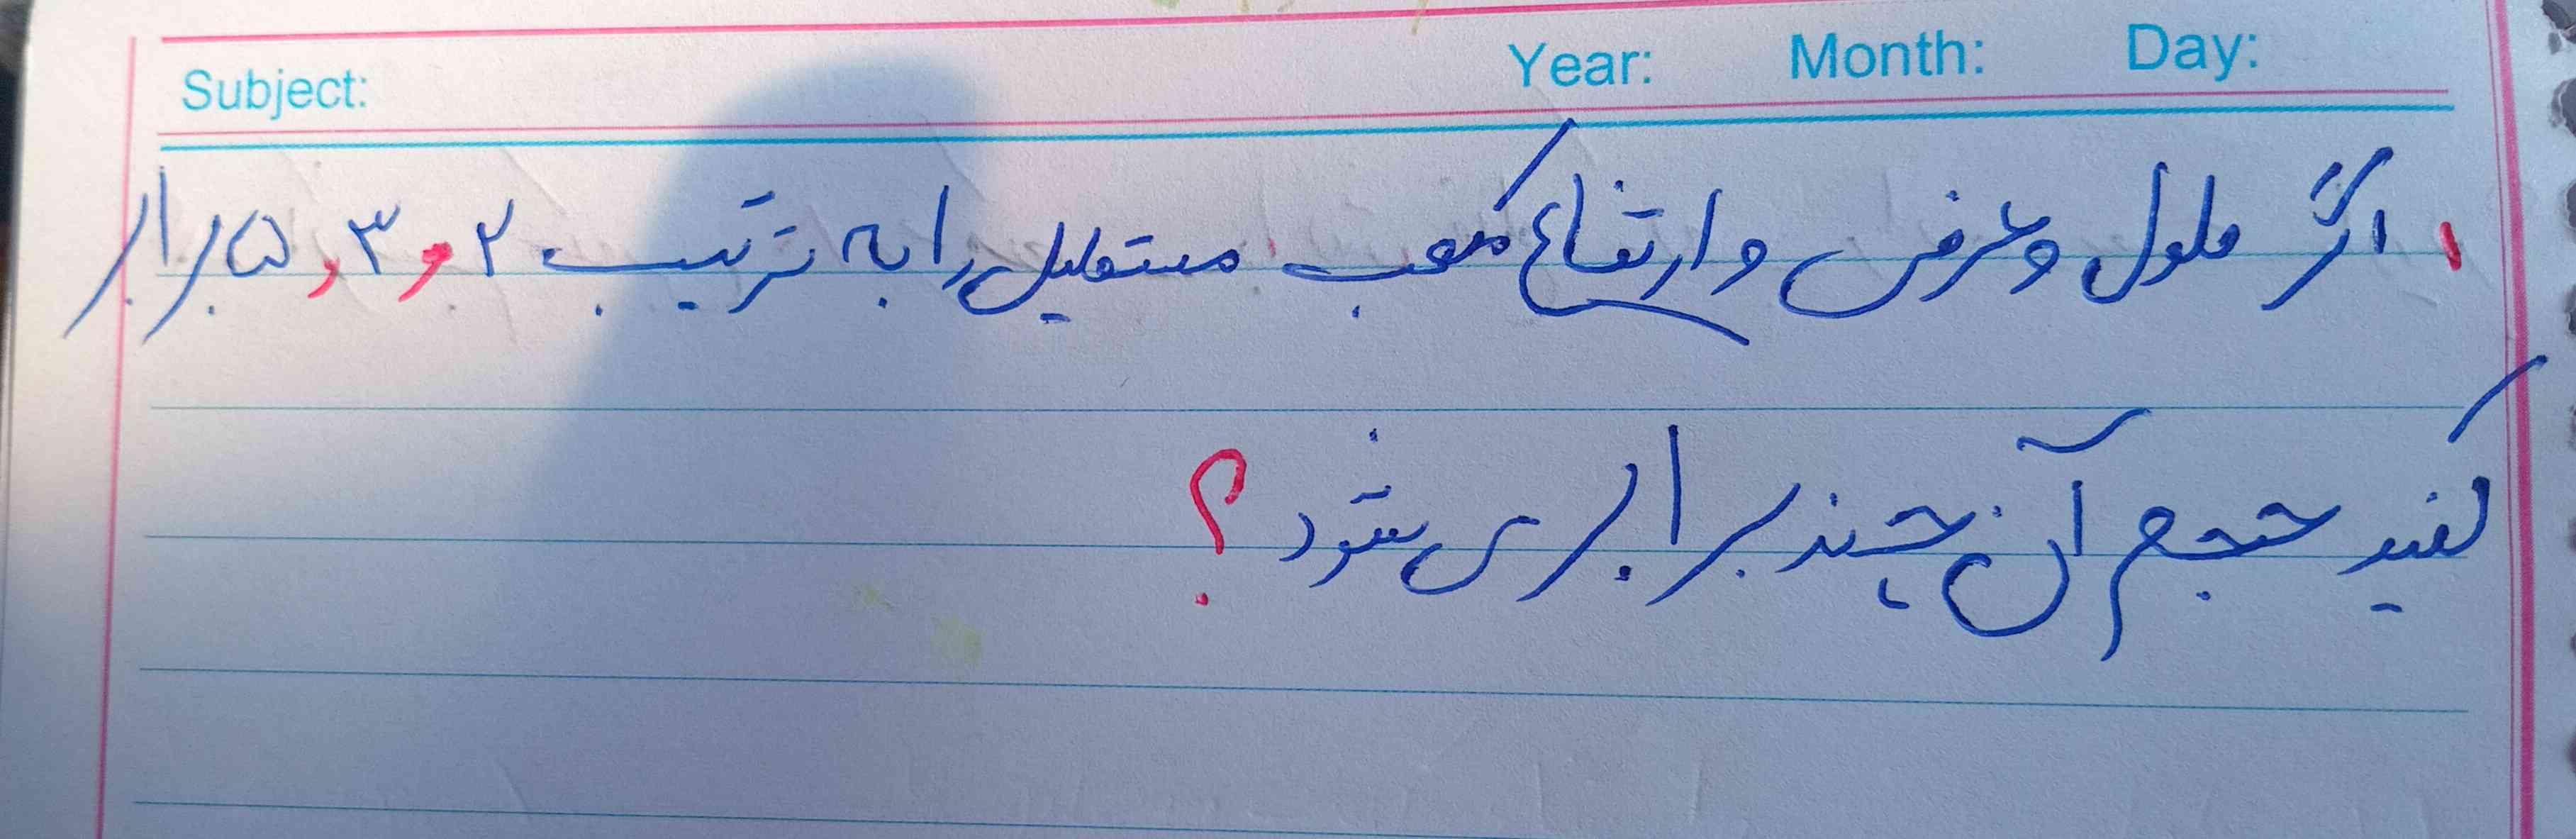 Subject: Year: Month: Day:
۱ اگر طول و عرض و ارتفاع مکعب مستطیل را به ترتیب ۲ و ۳ و ۵ برابر
کنید حجم آن چند برابر می شود ؟